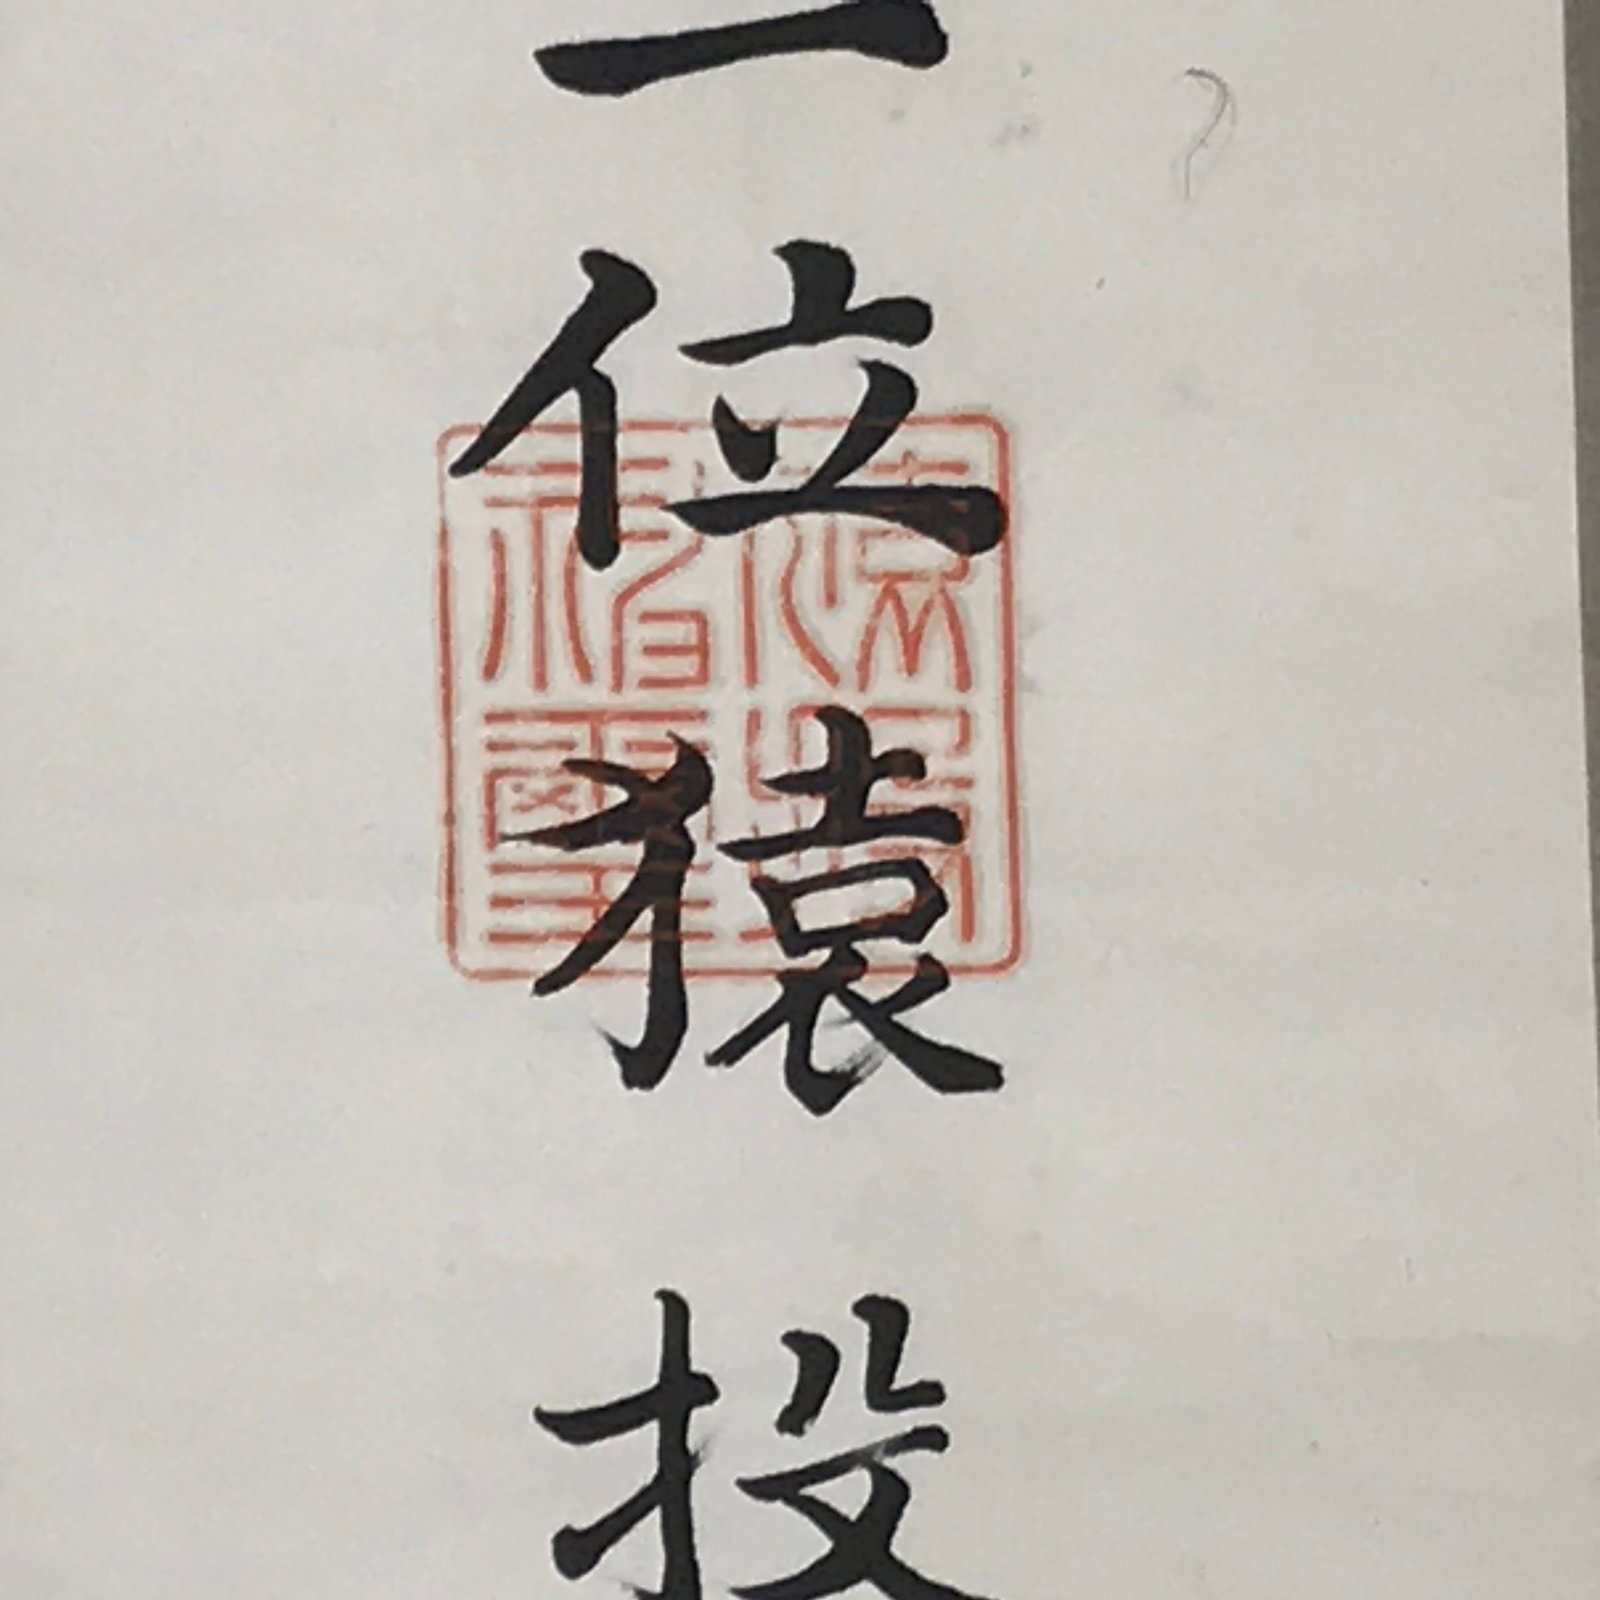 一位猿投